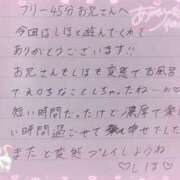 フリー45分お兄さんへ
今回はしほと遊んでくれて
ありがとうございます!!
お兄さんもしほも変態でお風呂
でえろちなことしちゃったね
短い時間だったけど濃厚で楽しい
時間過ごせて幸せでした
また変態プレイしようね
♡しほ♡